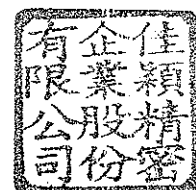 佳穎精密
企業股份
有限公司